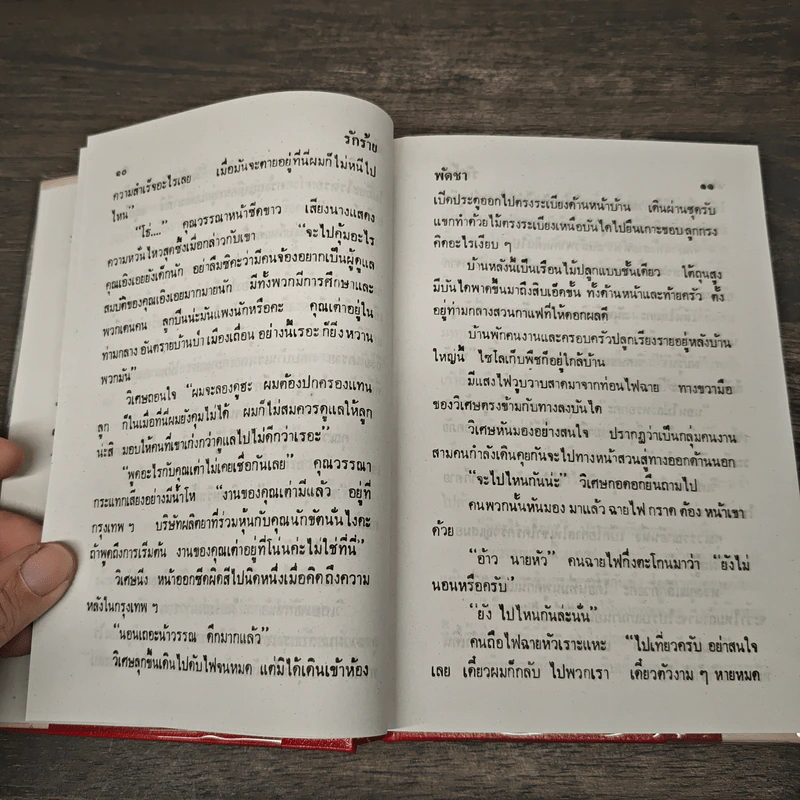 รักร้าย
๑๐
ความสำเร็จอะไรเลย เมื่อมันจะตายอยู่ที่นี่ผมก็ไม่หนีไป
ไหน”
“โธ่....” คุณวรรณาหน้าซีดขาว เสียงนางแสดง
ความหวั่นไหวสุดซึ้งเมื่อกล่าวกับเขา “จะไปคุ้มอะไร
คุณเอิงเอยยังเด็กนัก อย่าลืมซิคะว่ามีคนจ้องอยากเป็นผู้ดูแล
สมบัติของคุณเอิงเอยมากมายนัก มีทั้งพวกมีการศึกษาและ
พวกเดนคน ลูกปืนน่ะมันแพงนักหรือคะ คุณเต๋าอยู่ใน
ท่ามกลาง อันตรายบ้านป่า เมืองเถื่อน อย่างนี้เรอะ ก็ยิ่งหวาน
พวกมัน”
วิเศษถอนใจ “ผมจะลองดูฮะ ผมต้องปกครองแทน
ลูก ก็ในเมื่อที่นี่ผมยังคุมไม่ได้ ผมก็ไม่สมควรดูแลให้ลูก
น่ะสิ มอบให้คนที่เขาเก่งกว่าดูแลไปไม่ดีกว่าเรอะ”
“พูดอะไรกับคุณเต๋าไม่เคยเชื่อกันเลย” คุณวรรณา
กระแทกเสียงอย่างมีน้ำโห “งานของคุณเต๋ามีแล้ว อยู่ที่
กรุงเทพ ฯ บริษัทผลิตยาที่ร่วมหุ้นกับคุณนักขัตนั่นไงคะ
ถ้าพูดถึงการเริ่มต้น งานของคุณเต๋าอยู่ที่โน่นค่ะไม่ใช่ที่นี่”
วิเศษนิ่ง หน้าออกซีดผิดสีไปนิดหนึ่งเมื่อคิดถึงความ
หลังในกรุงเทพ ฯ
“นอนเถอะน้าวรรณ ดึกมากแล้ว”
วิเศษลุกขึ้นเดินไปดับไฟจนหมด แต่มิได้เดินเข้าห้อง
พัดชา
๑๑
เปิดประตูออกไปตรงระเบียงด้านหน้าบ้าน เดินผ่านชุดรับ
แขกทำด้วยไม้ตรงระเบียงเหนือบันไดไปยืนเกาะขอบลูกกรง
คิดอะไรเงียบ ๆ
บ้านหลังนี้เป็นเรือนไม้ปลูกแบบชั้นเดียว ใต้ถุนสูง
มีบันไดพาดขึ้นมาถึงสิบเอ็ดขั้น ทั้งด้านหน้าและท้ายครัว ตั้ง
อยู่ท่ามกลางสวนกาแฟที่ให้ดอกผลดี
บ้านพักคนงานและครอบครัวปลูกเรียงรายอยู่หลังบ้าน
ใหญ่นี้ ไซโลเก็บพืชก็อยู่ใกล้บ้าน
มีแสงไฟวูบวาบสาดมาจากท่อนไฟฉาย ทางขวามือ
ของวิเศษตรงข้ามกับทางลงบันได
วิเศษหันมองอย่างสนใจ ปรากฏว่าเป็นกลุ่มคนงาน
สามคนกำลังเดินคุยกันจะไปทางหน้าสวนสู่ทางออกด้านนอก
“จะไปไหนกันน่ะ” วิเศษกอดอกยืนถามไป
คนพวกนั้นหันมอง มาแล้ว ฉายไฟ กราด ต้อง หน้าเขา
ด้วย
“อ้าว นายหัว” คนฉายไฟกึ่งตะโกนมาว่า “ยังไม่
นอนหรือครับ’
“ยัง ไปไหนกันล่ะนั่น”
คนถือไฟฉายหัวเราะแหะ “ไปเที่ยวครับ อย่าสนใจ
เลย เดี๋ยวผมก็กลับ ไปพวกเรา เดี๋ยวตัวงาม ๆ หายหมด